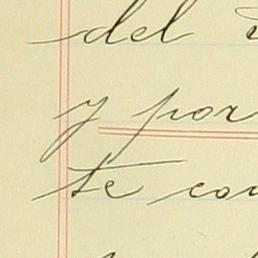 del
y por
te con